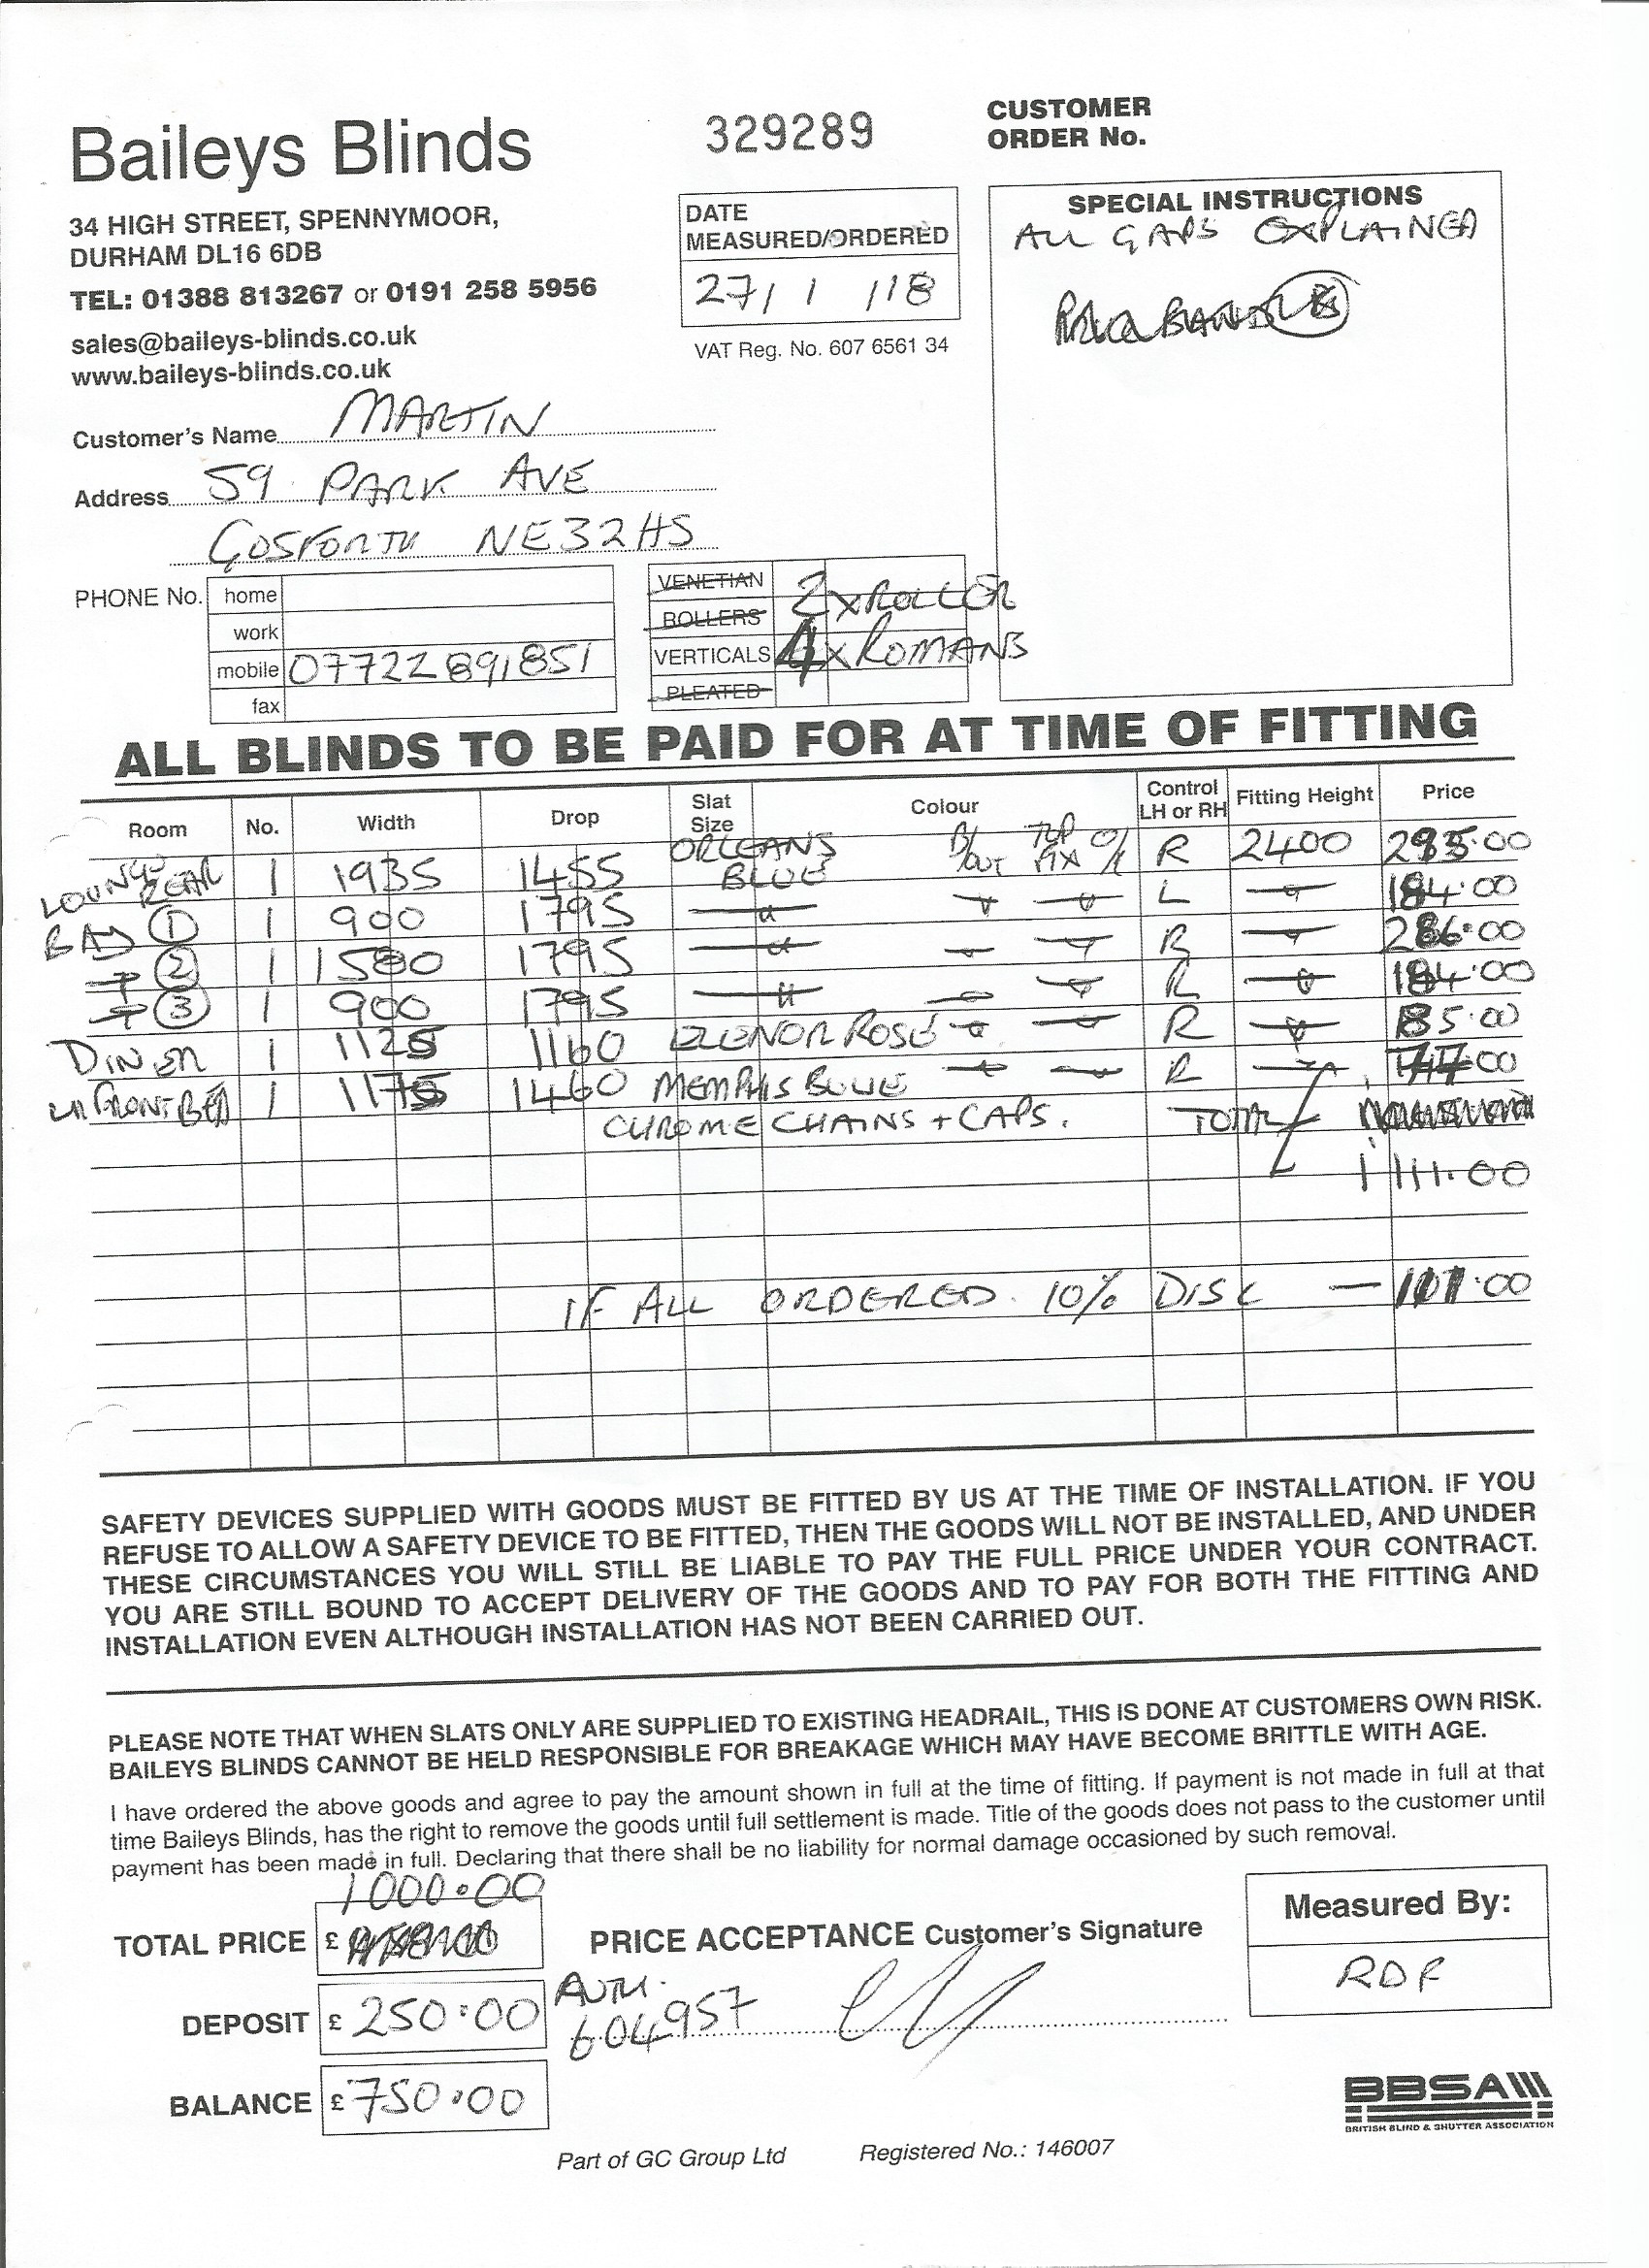 Baileys Blinds
34 HIGH STREET, SPENNYMOOR,
DURHAM DL16 6DB
TEL: 01388 813267 or 0191 258 5956
sales@baileys-blinds.co.uk
www.baileys-blinds.co.uk
329289
DATE
MEASURED/ORDERED
27/1/18
VAT Reg. No. 607 6561 34
CUSTOMER
ORDER No.
SPECIAL INSTRUCTIONS
ALL GAPS EXPLAINED
Customer's Name MARTIN
Address 59 PARK AVE
GOSFORTH NE32HS
PHONE No. home
work
mobile 07722 891851
fax
VENETIAN
ROLLERS 2 x ROLLER
VERTICALS 4 x ROMANS
PLEATED
ALL BLINDS TO BE PAID FOR AT TIME OF FITTING
Room No. Width Drop Slat Size Colour Control LH or RH Fitting Height Price
LOUNGE REAR 1 1935 1455 ORLEANS BLUE B/OUT TOP FIX R 2400
BAY 1 1 900 1795 L 184.00
2 1 1580 1795 R 286.00
3 1 900 1795 R 184.00
DINER 1 1125 1160 ELENOR ROSE R 85.00
FRONT BED 1 1175 1460 MEMPHIS BLUE R
CHROME CHAINS + CAPS. TOTAL
1111.00
IF ALL ORDERED 10% DISC — 111.00
SAFETY DEVICES SUPPLIED WITH GOODS MUST BE FITTED BY US AT THE TIME OF INSTALLATION. IF YOU
REFUSE TO ALLOW A SAFETY DEVICE TO BE FITTED, THEN THE GOODS WILL NOT BE INSTALLED, AND UNDER
THESE CIRCUMSTANCES YOU WILL STILL BE LIABLE TO PAY THE FULL PRICE UNDER YOUR CONTRACT.
YOU ARE STILL BOUND TO ACCEPT DELIVERY OF THE GOODS AND TO PAY FOR BOTH THE FITTING AND
INSTALLATION EVEN ALTHOUGH INSTALLATION HAS NOT BEEN CARRIED OUT.
PLEASE NOTE THAT WHEN SLATS ONLY ARE SUPPLIED TO EXISTING HEADRAIL, THIS IS DONE AT CUSTOMERS OWN RISK.
BAILEYS BLINDS CANNOT BE HELD RESPONSIBLE FOR BREAKAGE WHICH MAY HAVE BECOME BRITTLE WITH AGE.
I have ordered the above goods and agree to pay the amount shown in full at the time of fitting. If payment is not made in full at that
time Baileys Blinds, has the right to remove the goods until full settlement is made. Title of the goods does not pass to the customer until
payment has been made in full. Declaring that there shall be no liability for normal damage occasioned by such removal.
1000.00
TOTAL PRICE £
PRICE ACCEPTANCE Customer's Signature
DEPOSIT £ 250.00
AUTH.
604957
BALANCE £ 750.00
Measured By:
RDF
BBSA
BRITISH BLIND & SHUTTER ASSOCIATION
Part of GC Group Ltd Registered No.: 146007